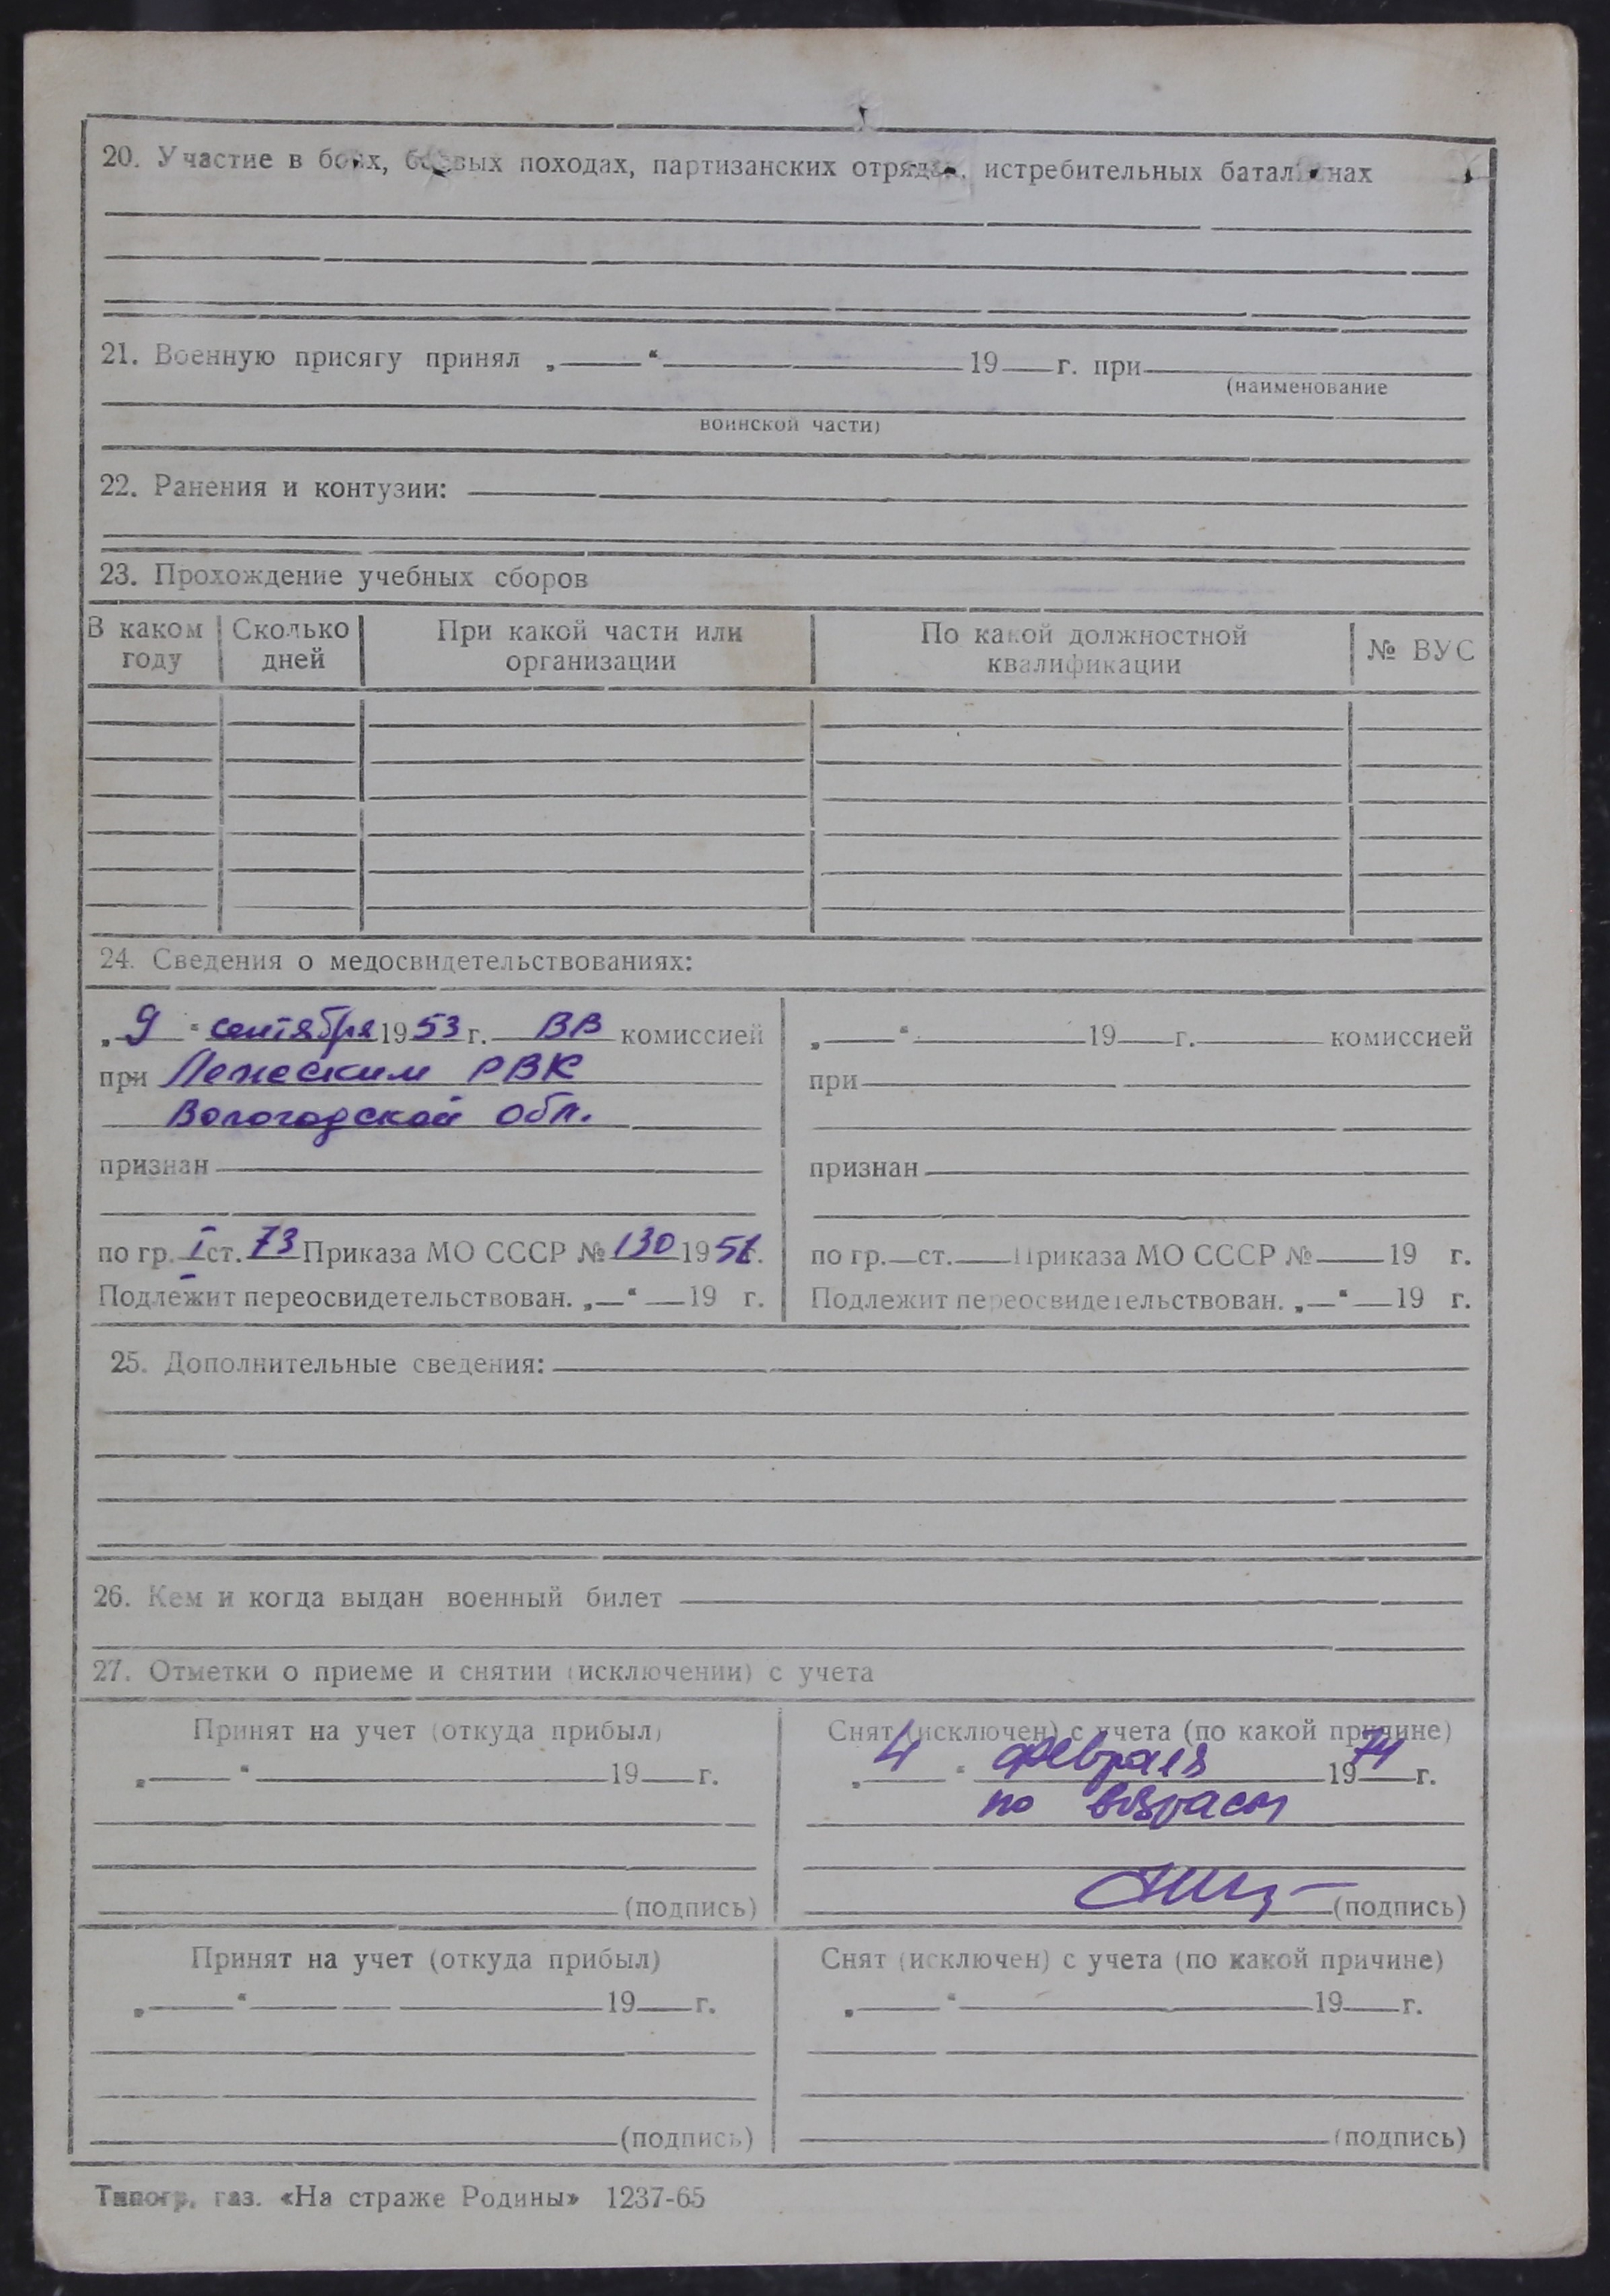 20. Участие в боях, боевых походах, партизанских отрядах, истребительных батальонах
21. Военную присягу принял „ “ 19 г. при
(наименование
воинской части)
22. Ранения и контузии:
23. Прохождение учебных сборов
В каком году Сколько дней При какой части или организации По какой должностной квалификации № ВУС
24. Сведения о медосвидетельствованиях:
„9“ сентября 1953 г. ВВ комиссией
при Лежским РВК
Вологодской обл.
признан
по гр. I ст. 73 Приказа МО СССР № 130 1951.
Подлежит переосвидетельствован. „ “ 19 г.
„ “ 19 г. комиссией
при
признан
по гр. ст. Приказа МО СССР № 19 г.
Подлежит переосвидетельствован. „ “ 19 г.
25. Дополнительные сведения:
26. Кем и когда выдан военный билет
27. Отметки о приеме и снятии (исключении) с учета
Принят на учет (откуда прибыл)
„ “ 19 г.
(подпись)
Снят (исключен) с учета (по какой причине)
„4“ февраля 1974 г.
по возрасту
(подпись)
Принят на учет (откуда прибыл)
„ “ 19 г.
(подпись)
Снят (исключен) с учета (по какой причине)
„ “ 19 г.
(подпись)
Типогр. газ. «На страже Родины» 1237-65